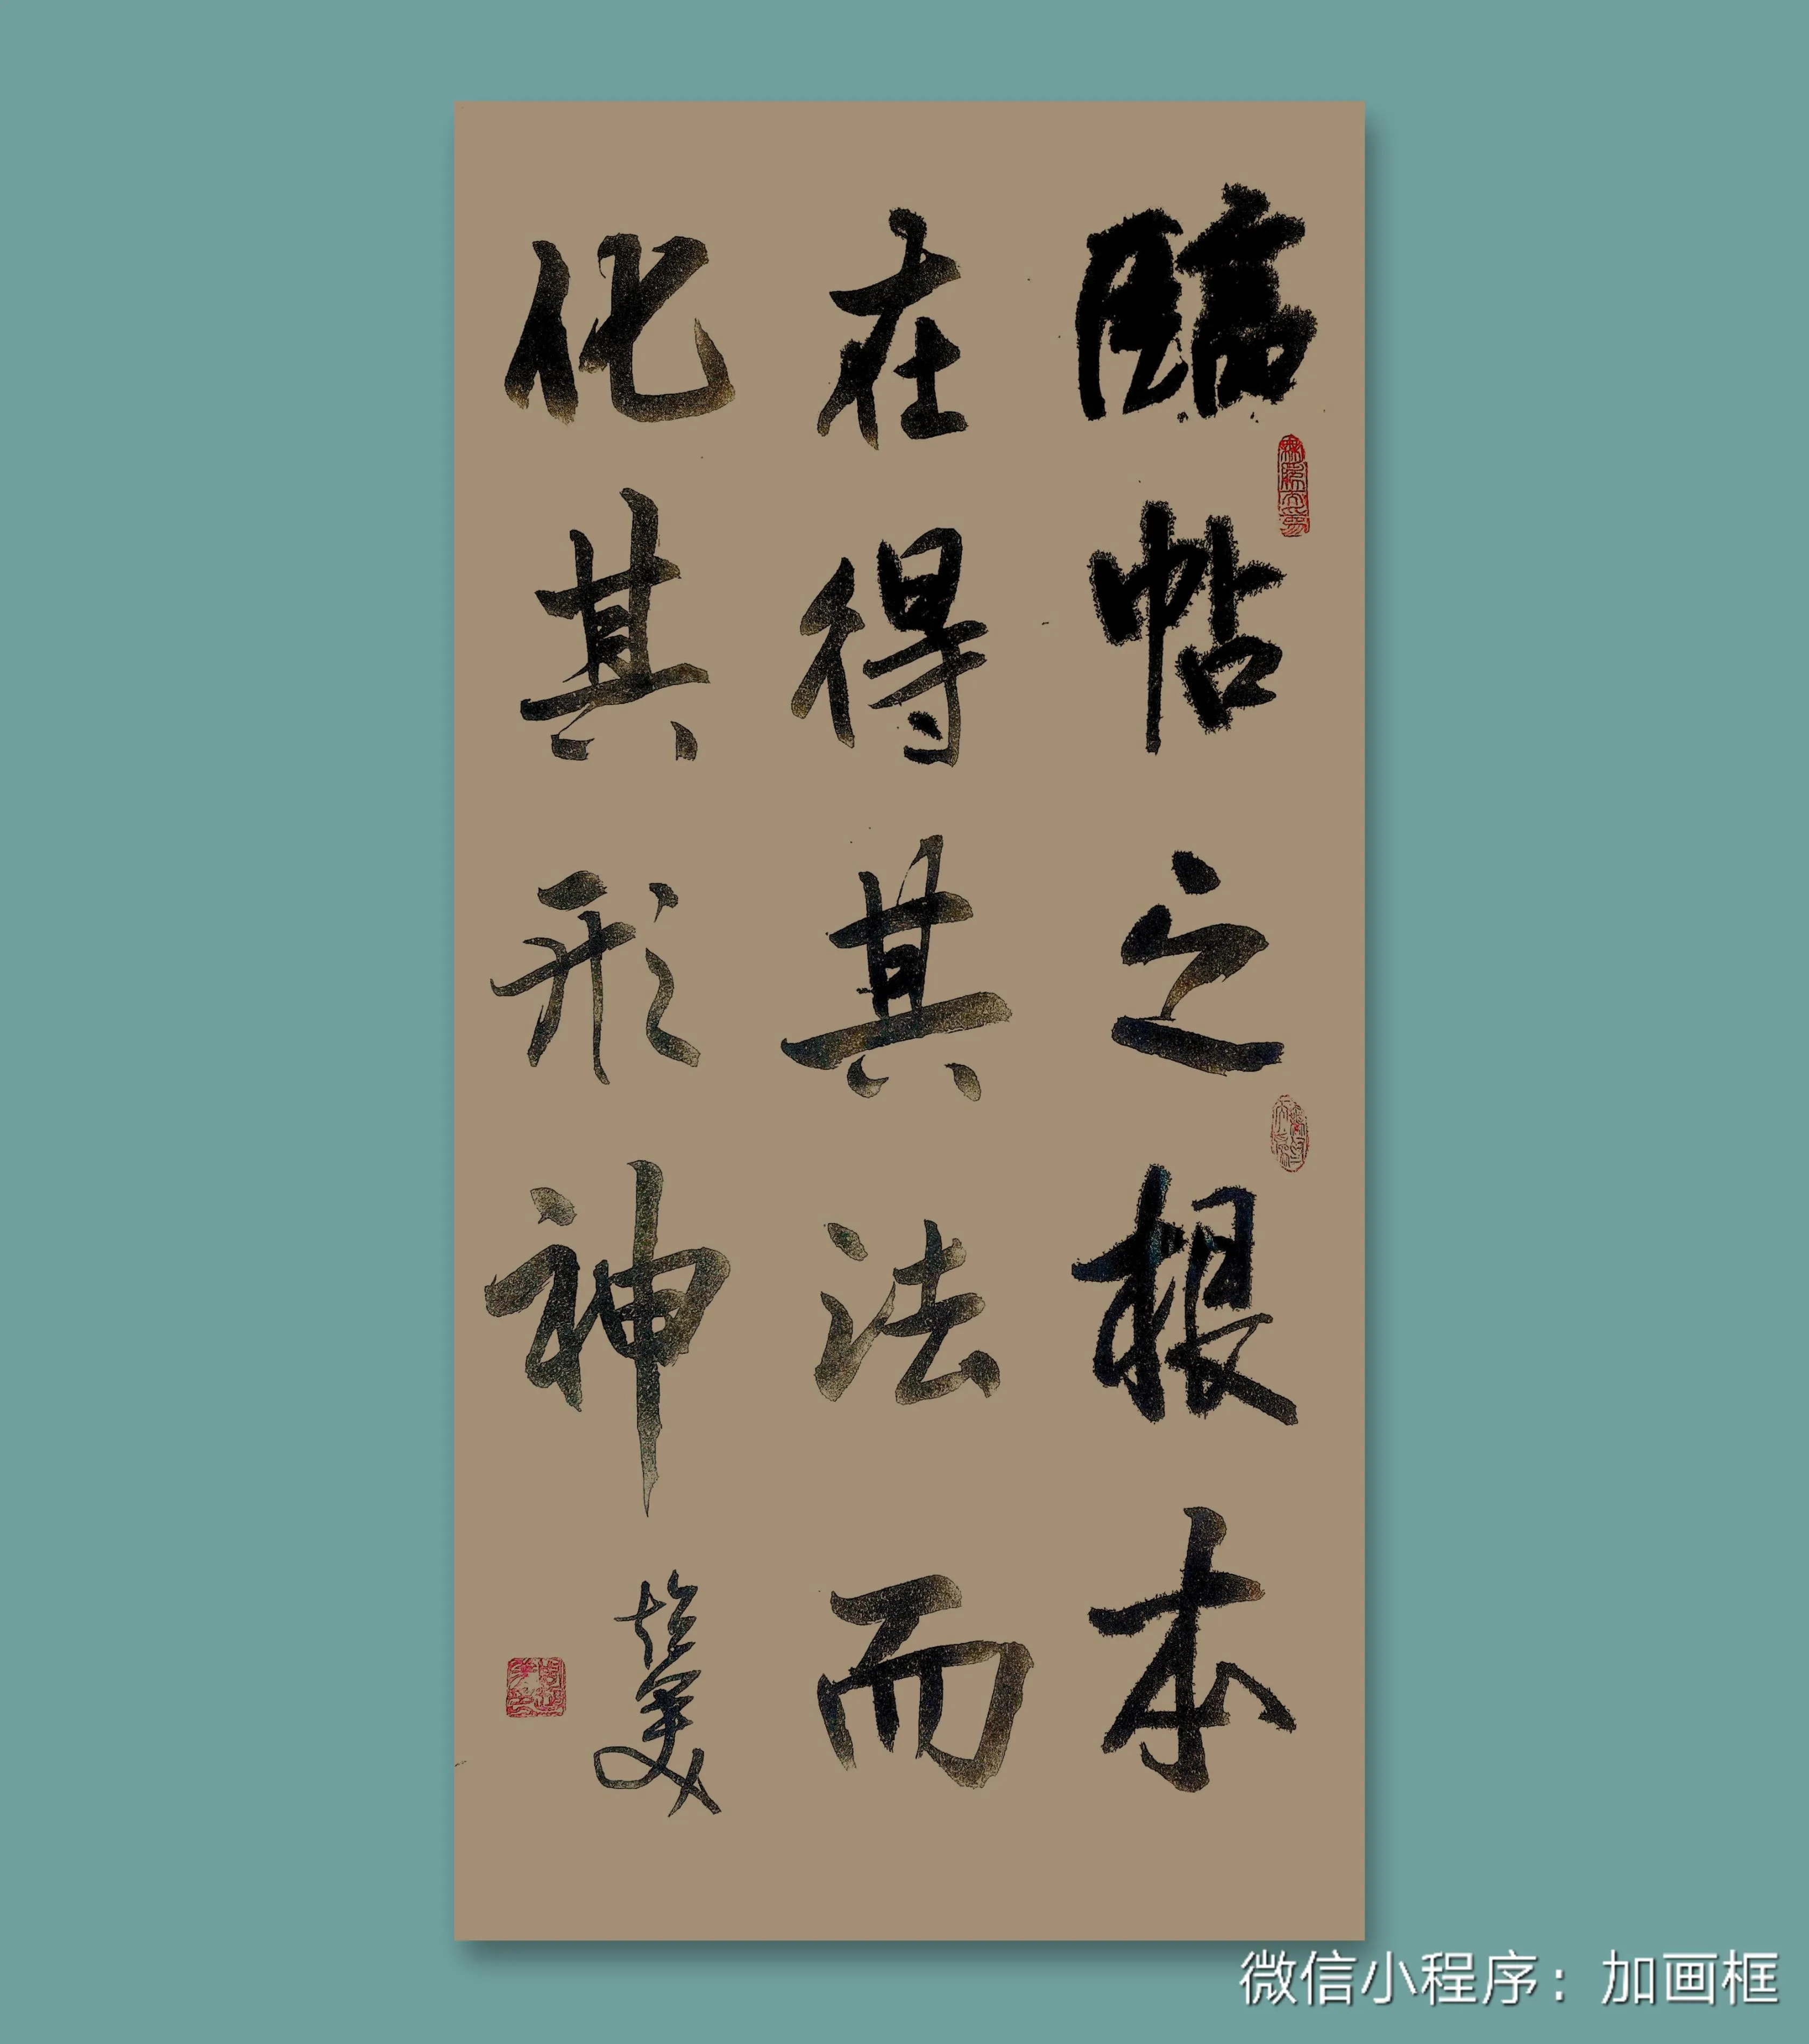 臨帖之根本
在得其法而
化其形神
微信小程序：加画框